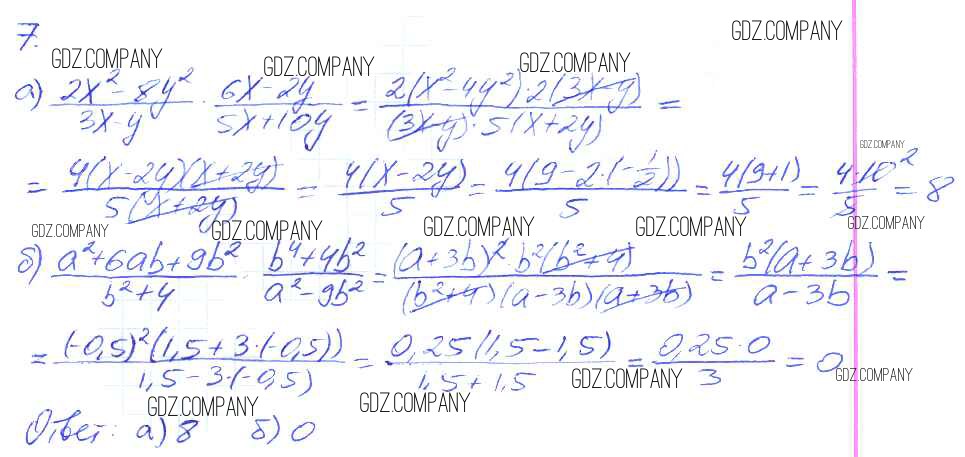 7.
GDZ.COMPANY GDZ.COMPANY GDZ.COMPANY GDZ.COMPANY
а) (2x² - 8y²)/(3x - y) · (6x - 2y)/(5x + 10y) = (2(x² - 4y²) · 2(3x - y))/((3x - y) · 5(x + 2y)) =
GDZ.COMPANY
= (4(x - 2y)(x + 2y))/(5(x + 2y)) = (4(x - 2y))/5 = (4(9 - 2·(-1/2)))/5 = (4(9 + 1))/5 = (4·10²)/5 = 8
GDZ.COMPANY GDZ.COMPANY GDZ.COMPANY GDZ.COMPANY GDZ.COMPANY
б) (a² + 6ab + 9b²)/(b² + 4) · (b⁴ + 4b²)/(a² - 9b²) = ((a + 3b)² · b²(b² + 4))/((b² + 4)(a - 3b)(a + 3b)) = (b²(a + 3b))/(a - 3b) =
= ((-0,5)²(1,5 + 3·(-0,5)))/(1,5 - 3·(-0,5)) = (0,25(1,5 - 1,5))/(1,5 + 1,5) = (0,25·0)/3 = 0
GDZ.COMPANY GDZ.COMPANY GDZ.COMPANY GDZ.COMPANY
Ответ: а) 8 б) 0